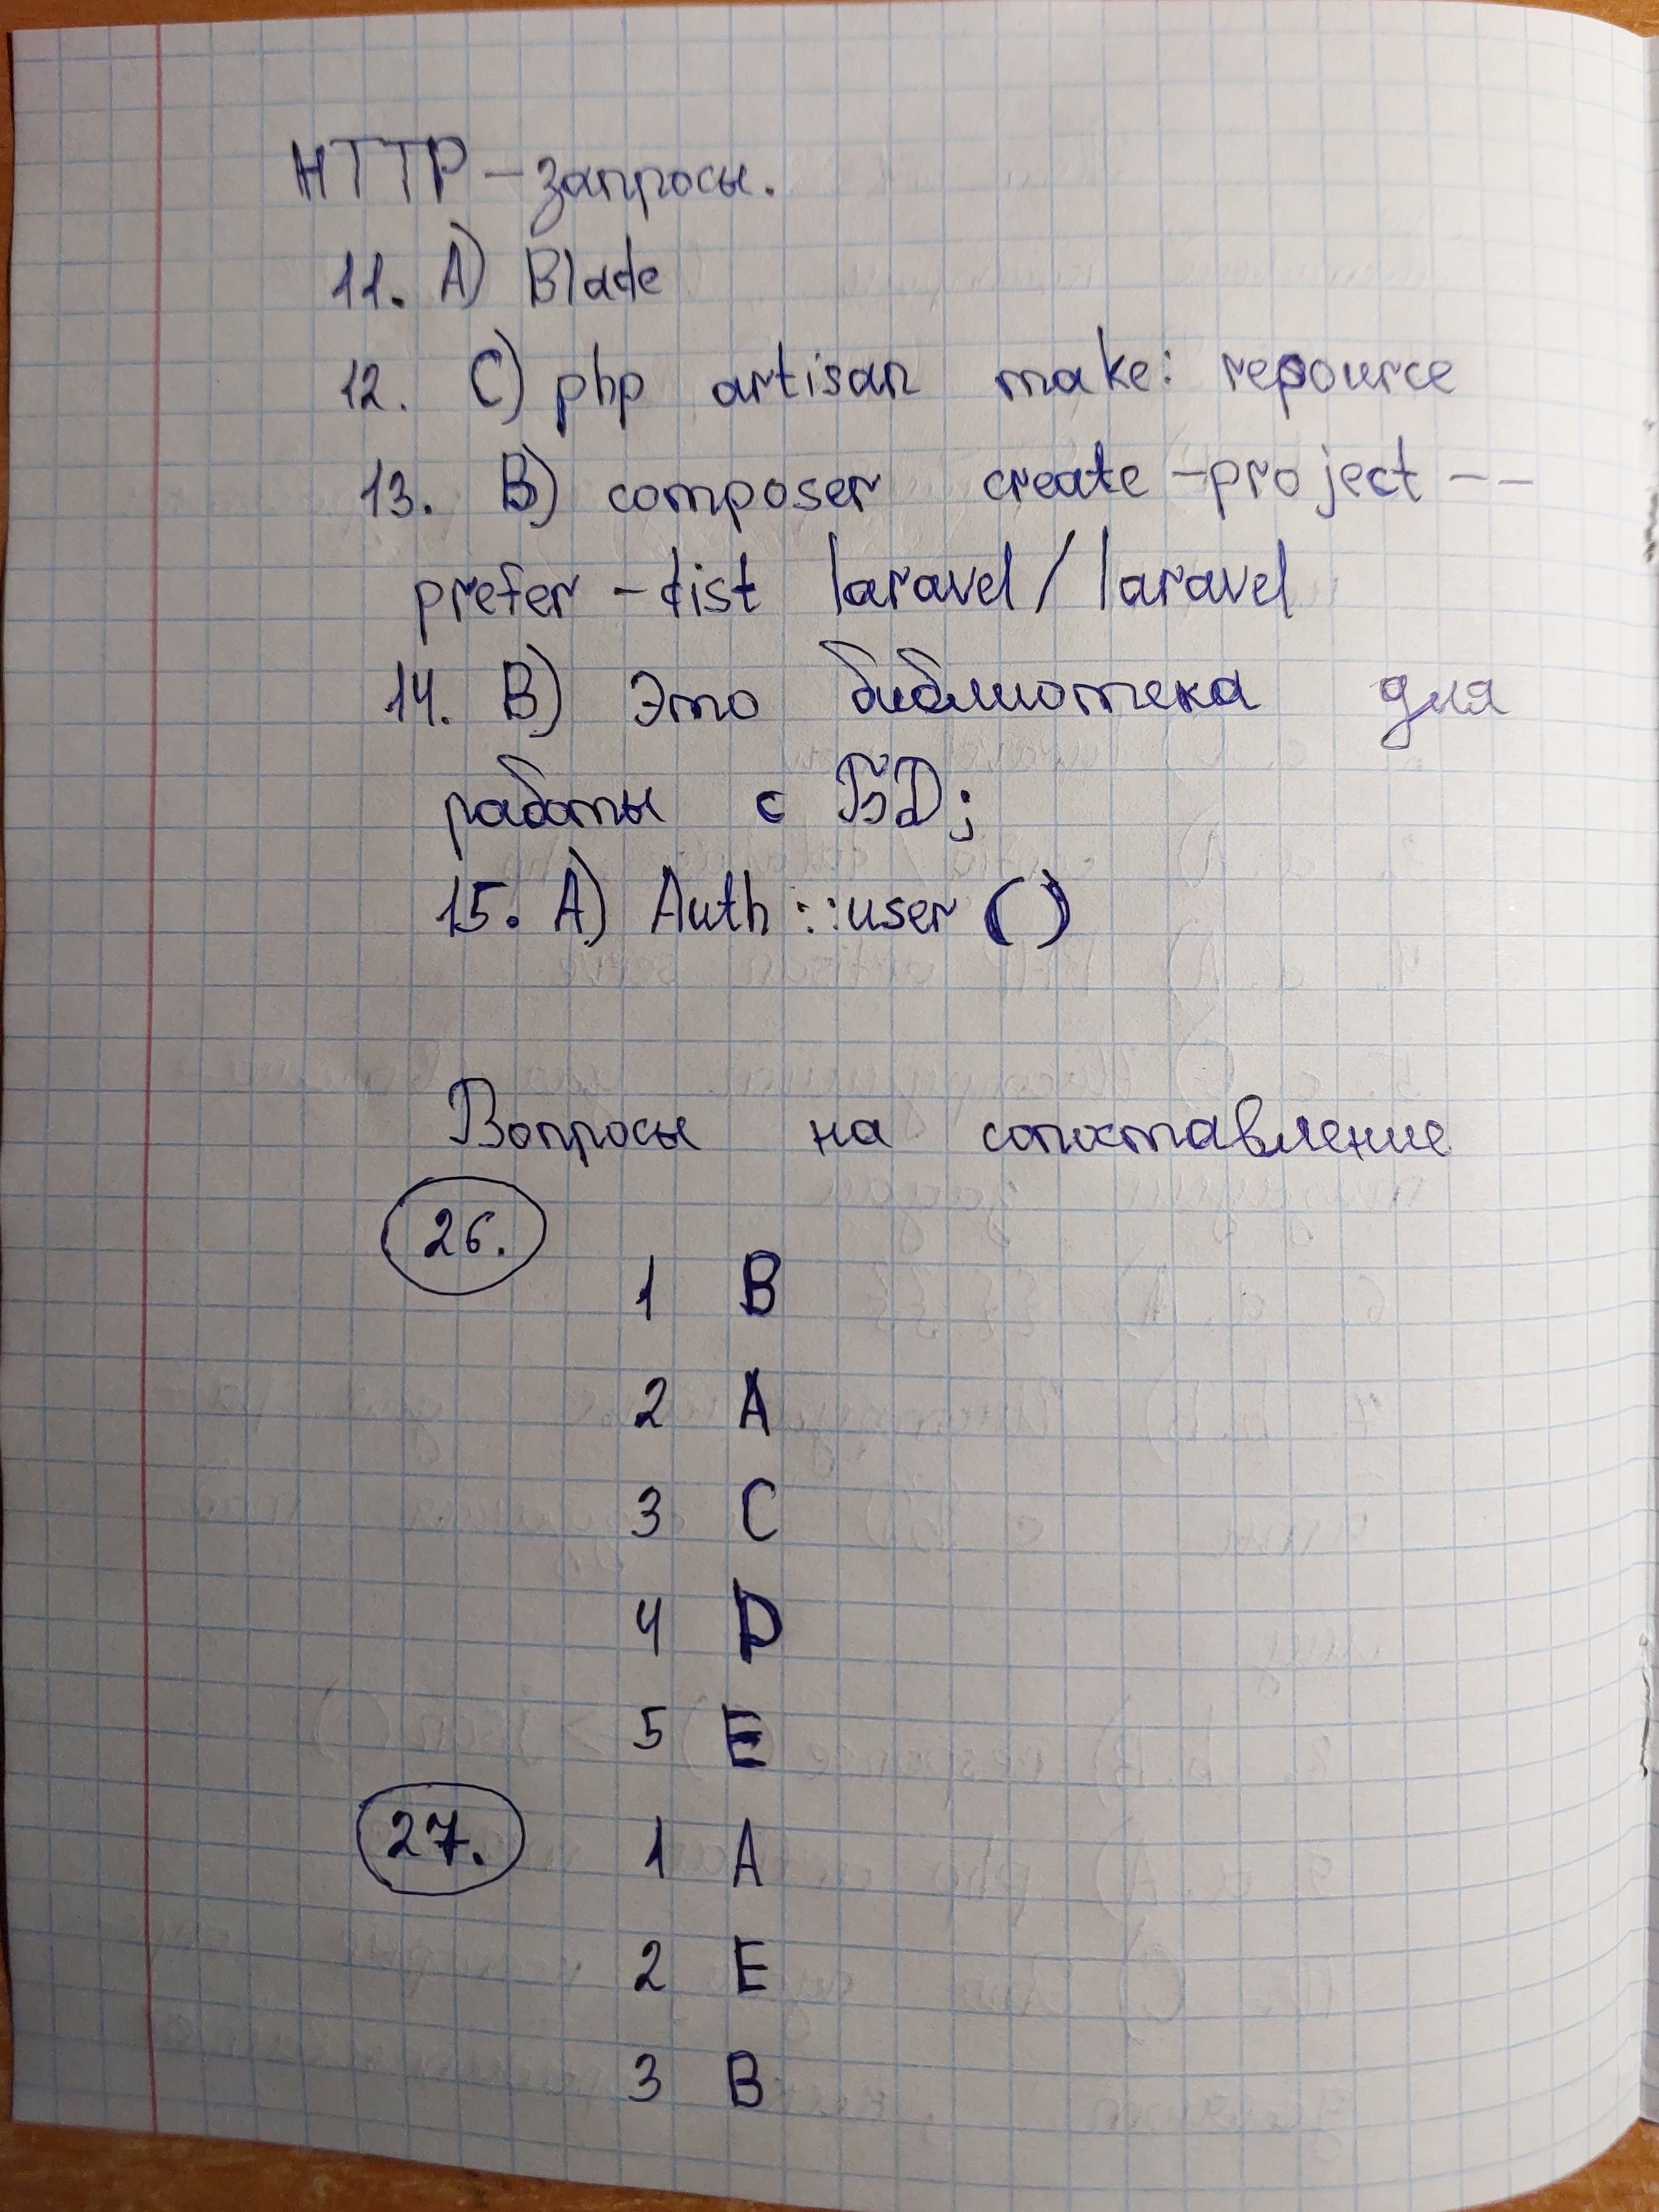 HTTP-запросы.
11. A) Blade
12. C) php artisan make: resource
13. B) composer create-project --
prefer-dist laravel/laravel
14. B) Это библиотека для
работы с БД;
15. A) Auth::user()
Вопросы на сопоставление
26.
1 B
2 A
3 C
4 D
5 E
27. 1 A
2 E
3 B